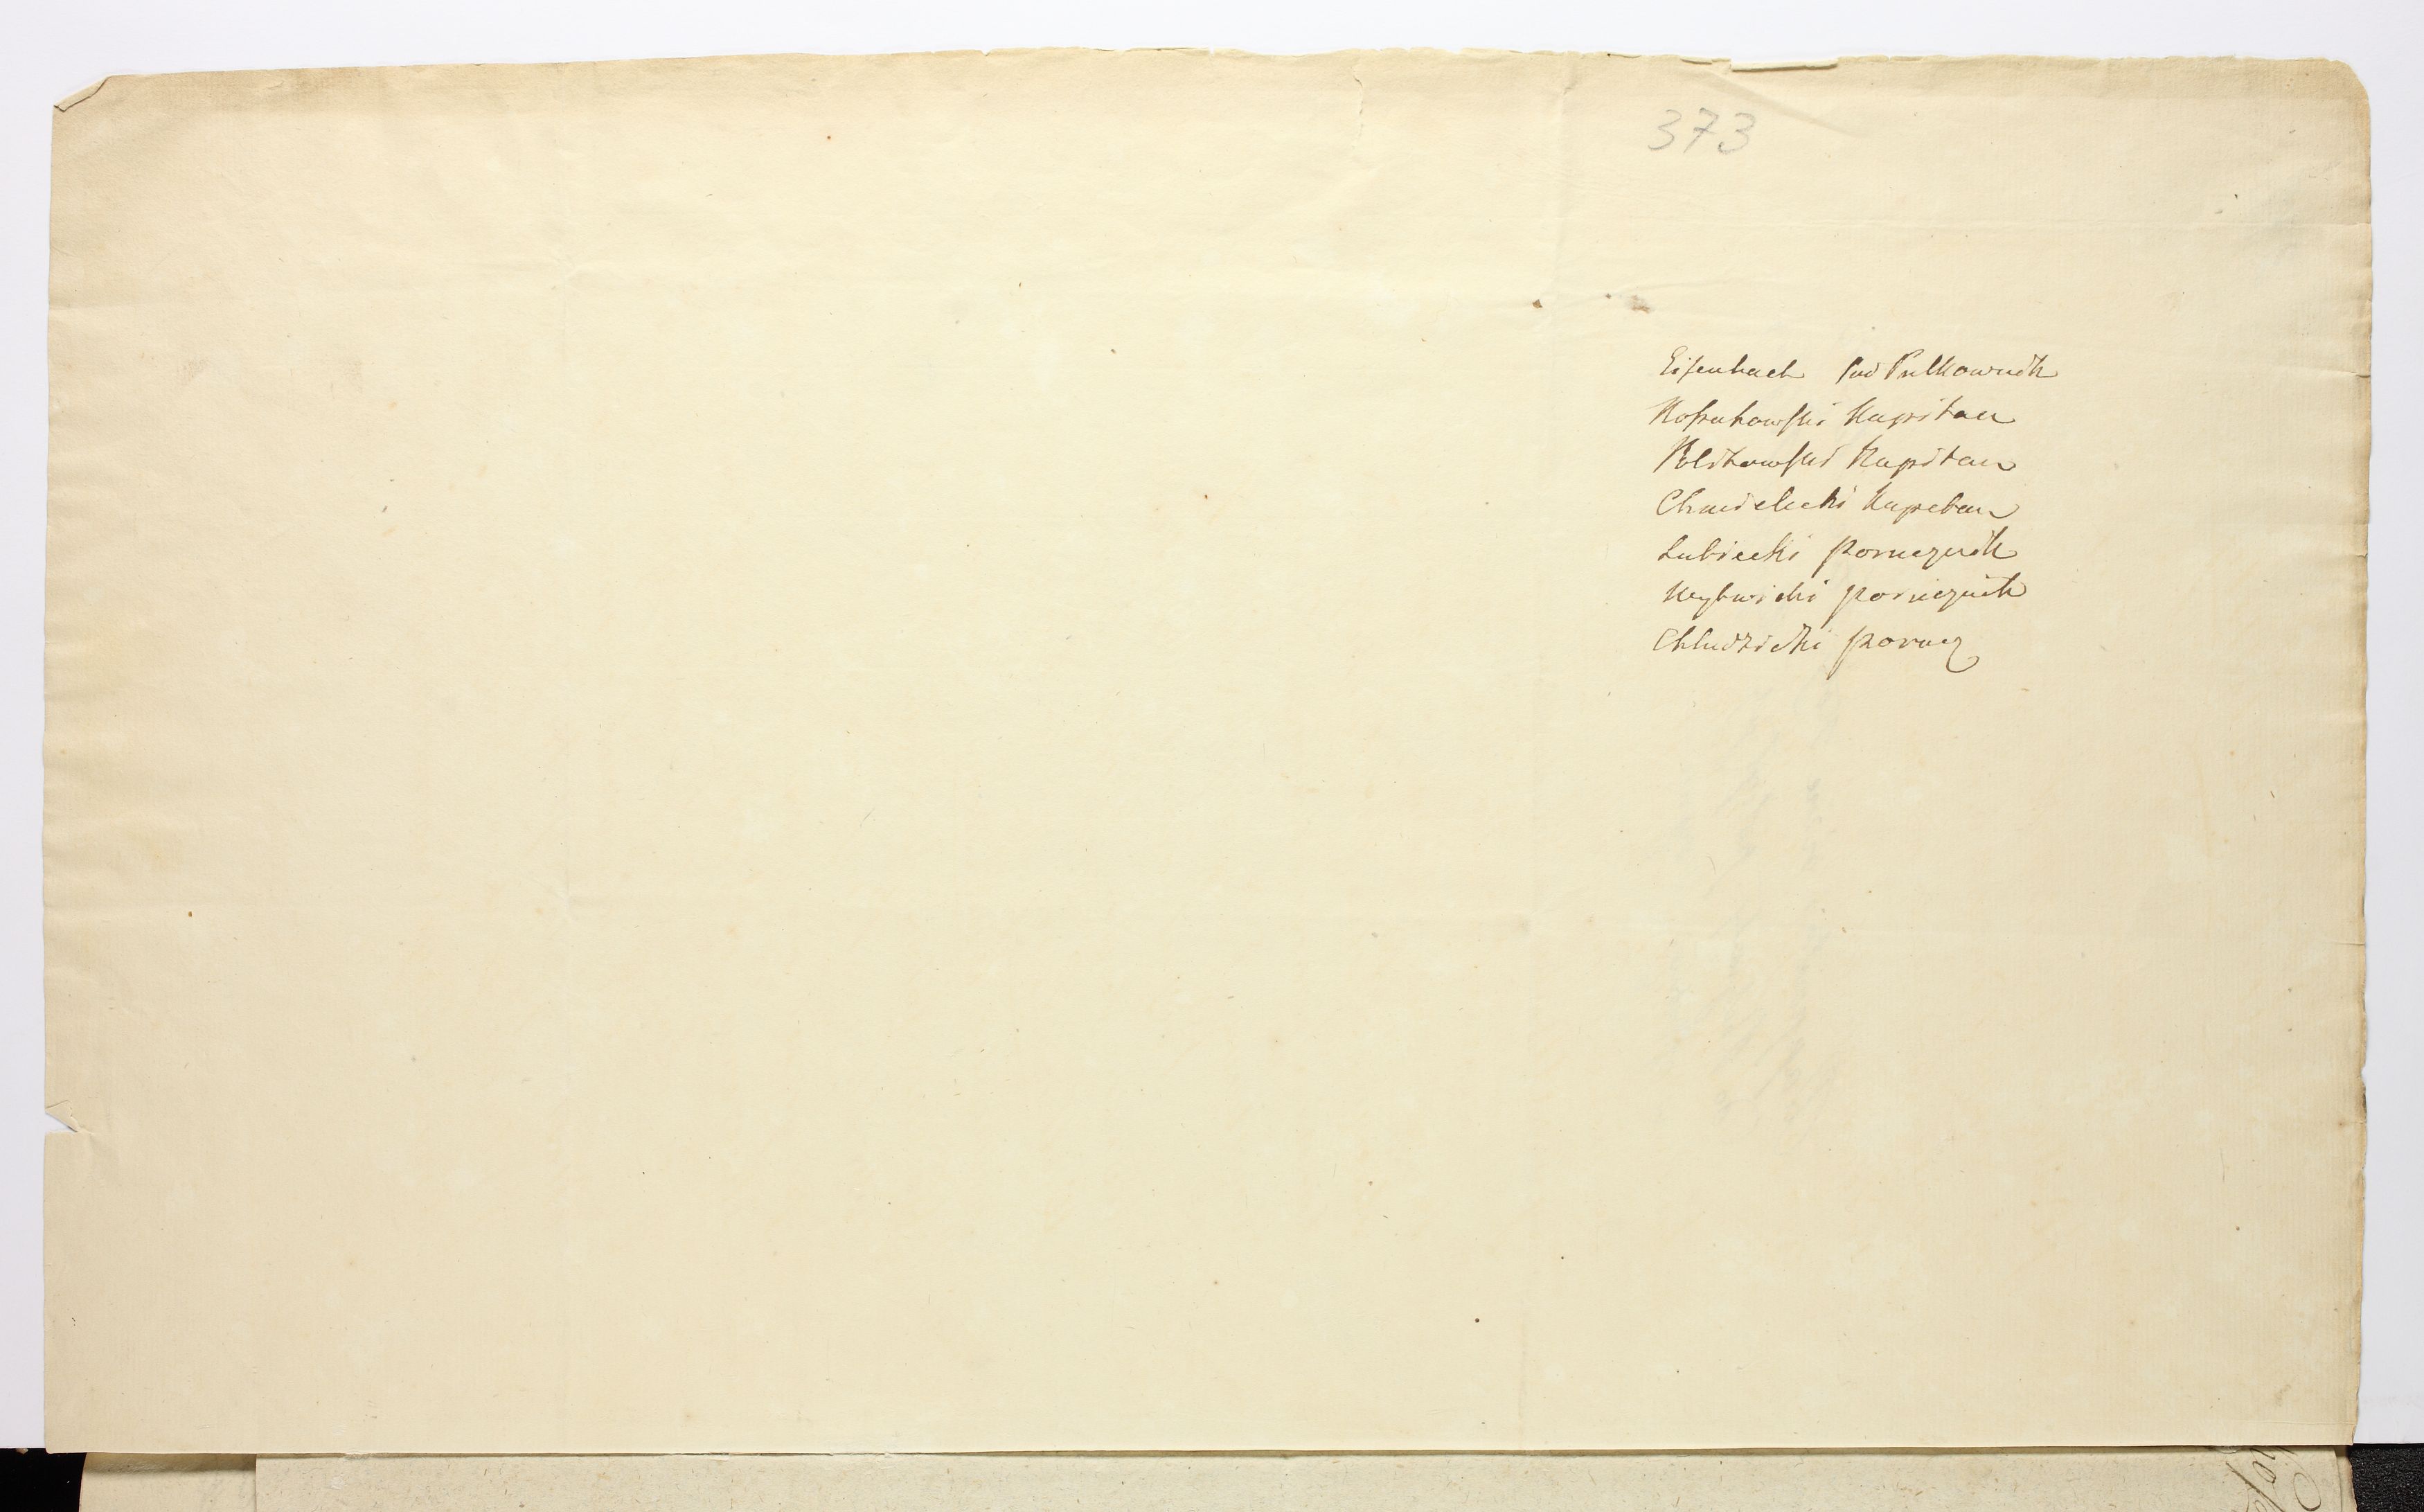 373
Eisenbach Pod Pulkownik
Kossakowski Kapitan
Politowski Kapitan
Chmielecki Kapitan
Lubiecki porucznik
Wybwicki porucznik
Chludzicki porucz